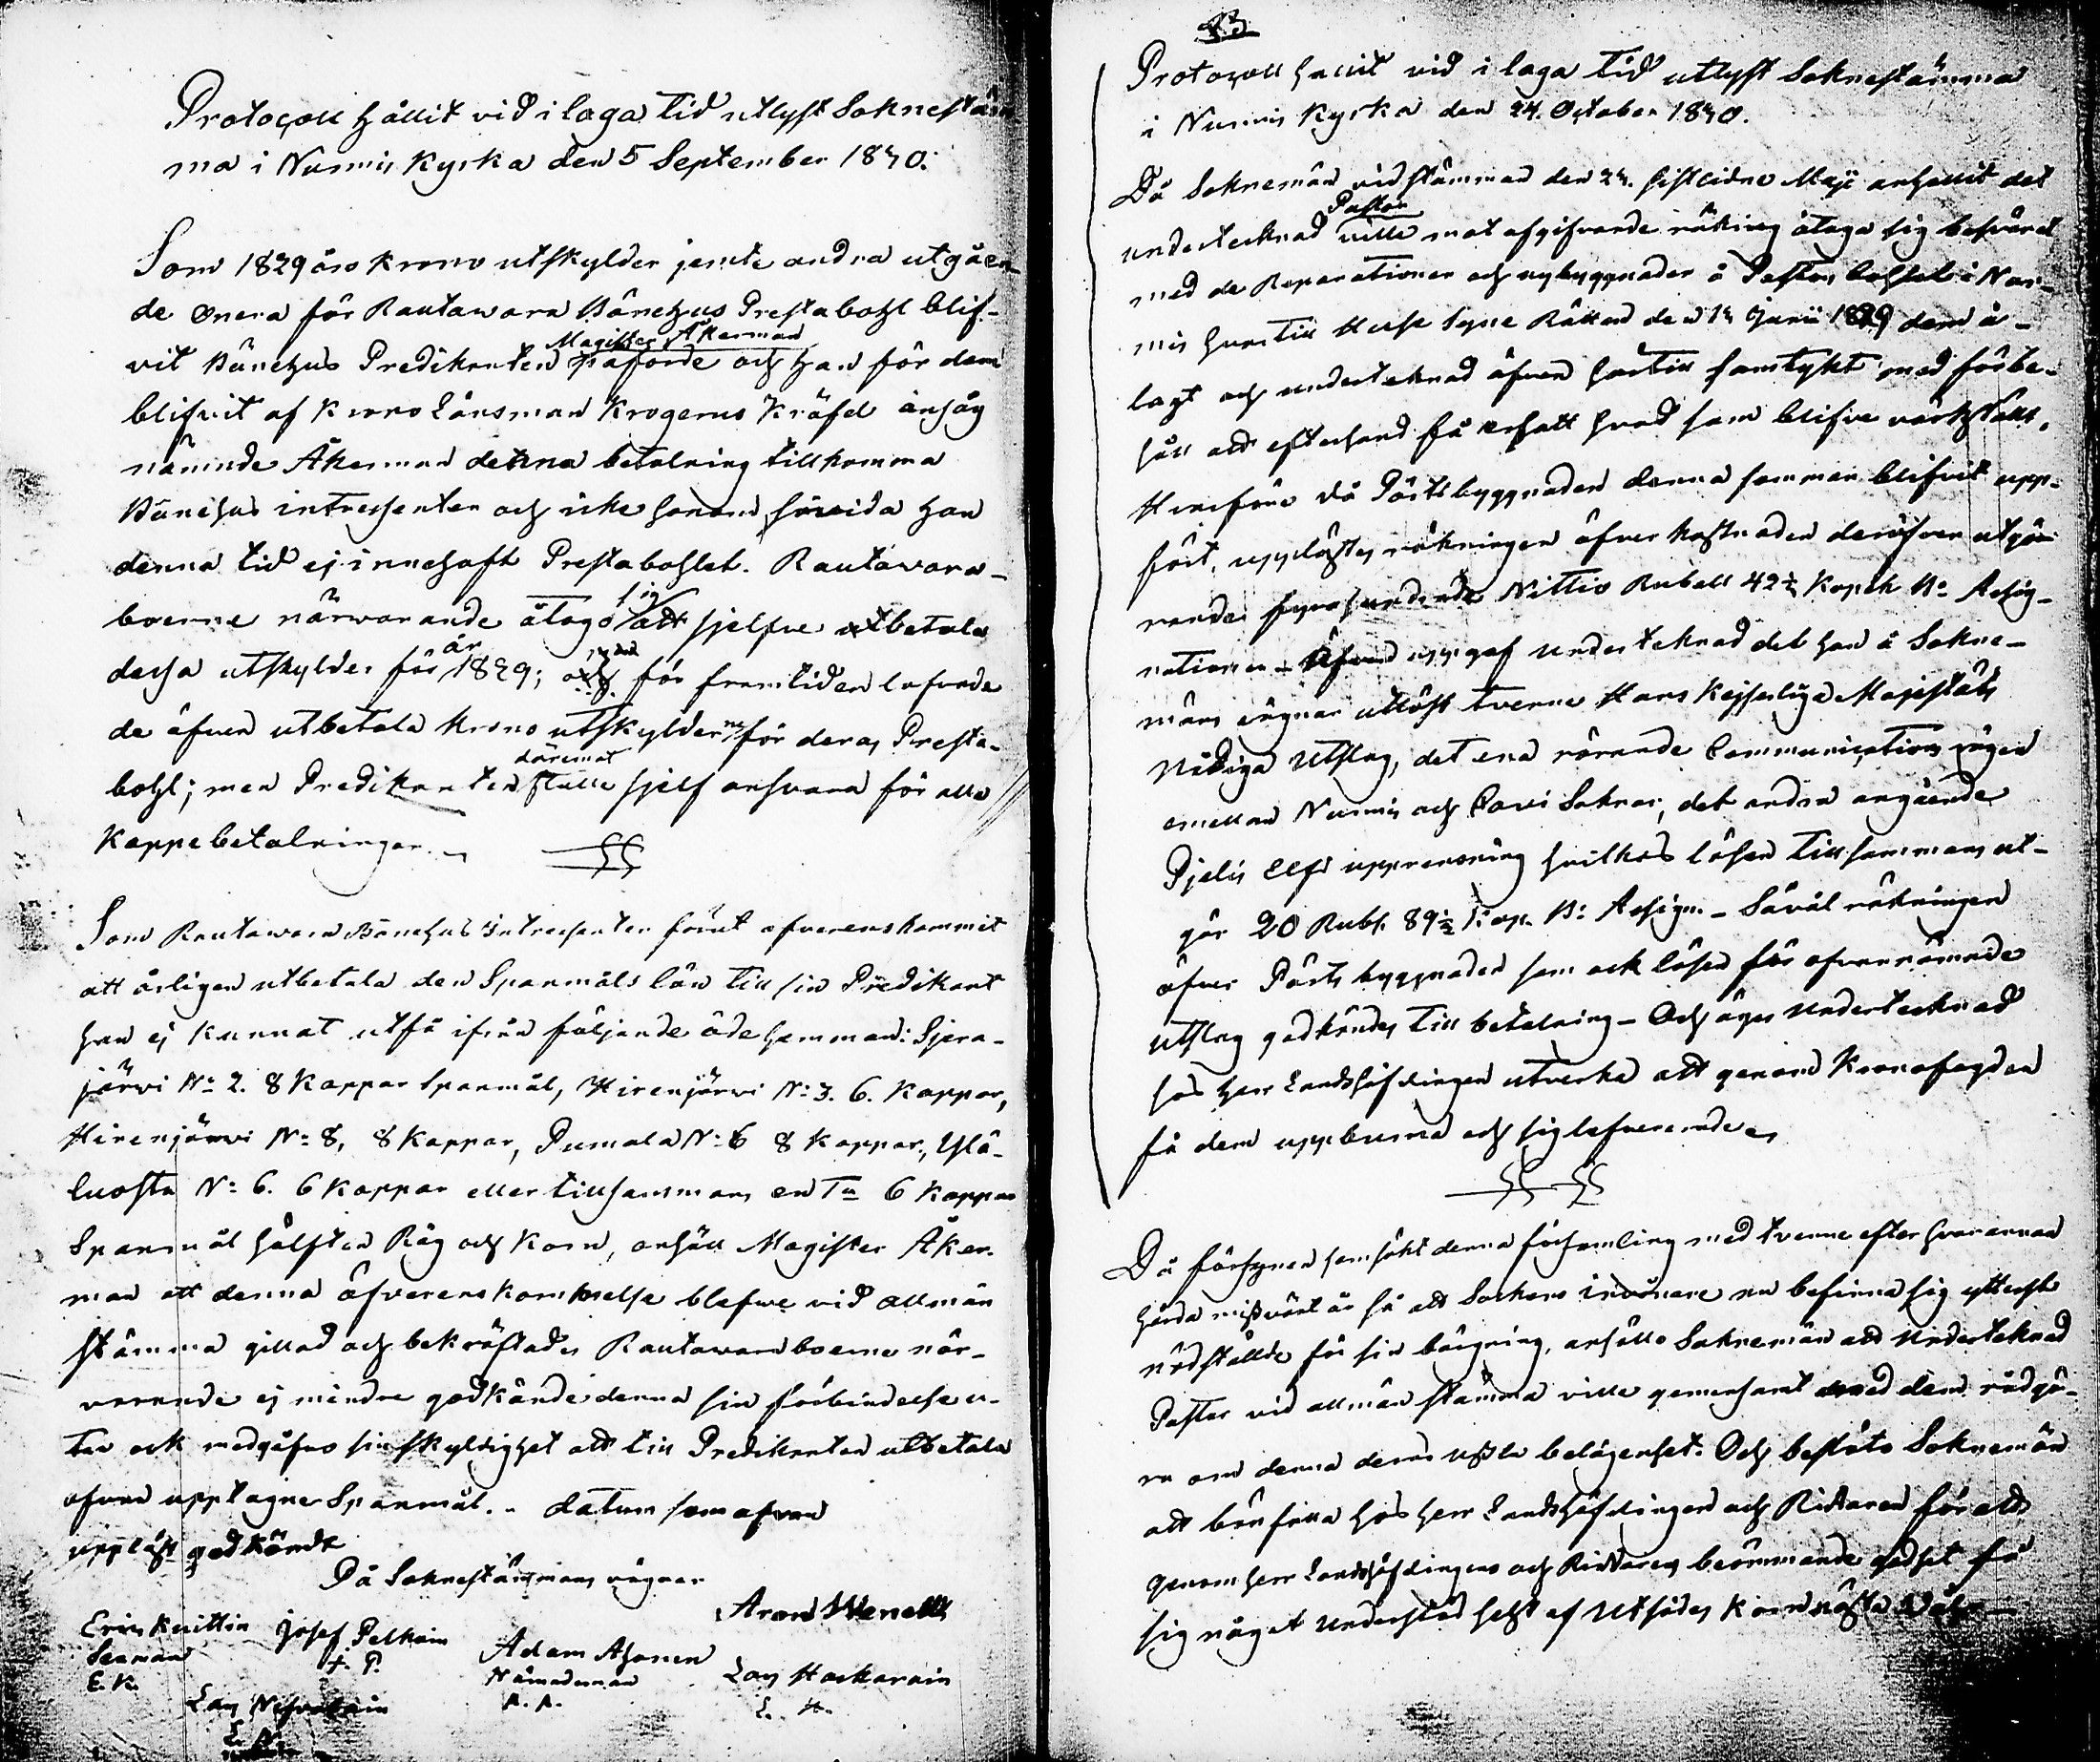 Protocoll hållit vid i laga tid utlyst Soknestäm
ma i Nurmis Kyrka den 5 September 1830.
Som 1829 års krono utskylder jemte andra utgåen-
de onera för Rautawara Bönehus Prestabohl blif-
Magister Åkerman
vit Bönehus Predikanten påförde och han för dem
blifvit af Krono Länsman Krogerus kräfd ansåg
nämnde Åkerman denna betalning tillkomma
Bönehus intressenter och icke honom, såvida han
denna tid ej innehaft Prestabohlet. Rautavara-
boerne närwarande åtogo sig att sjelfve utbetala
dessa utskylder för år 1829; och för framtiden lofvade
de äfven utbetala Krono utskylderne för deras Presta-
däremot
bohl; men Predikanten skulle sjelf ansvara för alla
Kappebetalningar.
Som Rautawara Bönehus Intressenter förut öfverenskommit
att årligen utbetala den Spanmåls lön till sin Predikant
han ej kunnat utfå ifrån följande öde hemman: Sjera-
järwi N:o 2. 8 Kappar Spanmål, Hirenjärwi N:o 3. 6. Kappar,
Hirenjärwi N:o 8, 8 Kappar, Pumala N:o 6 8 Kappar, Ylä-
Luosta N:o 6. 6 Kappar eller tillsammans en T:a 6 Kappar
Spanmål hälften Råg och Korn, anhöll Magister Åker-
man att denna öfverenskommelse blefwe vid allmän
stämma gillad och bekräftad. Rautawaraboerne när-
varande ej mindre godkände denna sin förbindelse u-
tan ock medgåfvo sin skyldighet att till Predikanten utbetala
ofvan upptagne Spanmål. - datum som ofvan
uppläst godkändt
På Soknestämmans vägnar
Aron Wenell
Eric Kuittin Josef Pelkoin
Sexman + P.
E. K.
Adam Ahonen
Nämndeman
A. A.
Lars Hackarain
L. H.
Lars
43
Protocoll hållit vid i laga tid utlyst Soknestämma
i Nurmis Kyrka den 24. October 1830.
Då Soknemän vid stämman den 24. sistlidne Maji anhållit det
Pastor
undertecknad ville mot afgifvande räkning åtaga sig besväret
med de Reparationer och nybyggnader å Pastors bohlet i Nur-
mis hvartill Huse Syne Rätten den 14 Junii 1829 dem å-
lagt och undertecknad äfven härtill samtykt med förbe-
håll att efterhand få ersatt hvad som blifve värkstält,
Hvarföre då Pörtsbyggnaden denna sommar blifvit upp-
fört, upplästes räkningen öfver kostnaden deröfver utgö-
rande fyrahundrade Nittio Rubell 42½ Kopek B:o Assig-
nationer - Äfven uppgaf undertecknad det han å Sokne-
mäns vägnar utlöst tvenne Hans Kejserliga Majestäts
Nådiga Utslag, det ena rörande Communications vägen
emellan Nurmis och Pavi Soknar, det andra angående
Pjelis Elfs upprensning hvilkas lösen tillsammans ut-
gör 20 Rub. 89½ Kop. B:o Assign. - Såväl räkningen
öfver Pörts byggnaden som ock lösen för ofvannämnde
utslag godkändes till betalning - Och äger undertecknad
hos herr Landshöfdingen utverka att genom Kronofogden
få dem uppburna och sig lefvererade.
Då försynen hemsökt denna församling med tvenne efter hvarannan
hårda missväxt år så att Sockens invånare nu befinna sig ytterst
nödstälde för sin bärgning, anhöllo Soknemän att Undertecknad
Pastor vid allmän stämma ville gemensamt med dem rådgö-
ra om denna deras usla belägenhet. Och beslöto Soknemän
att bönfalla hos herr Landshöfdingen och Riddaren för att
genom herr Landshöfdingens och Riddarens berömmande godhet få
sig något Understöd helst af Utsädes Korn nästa Vår